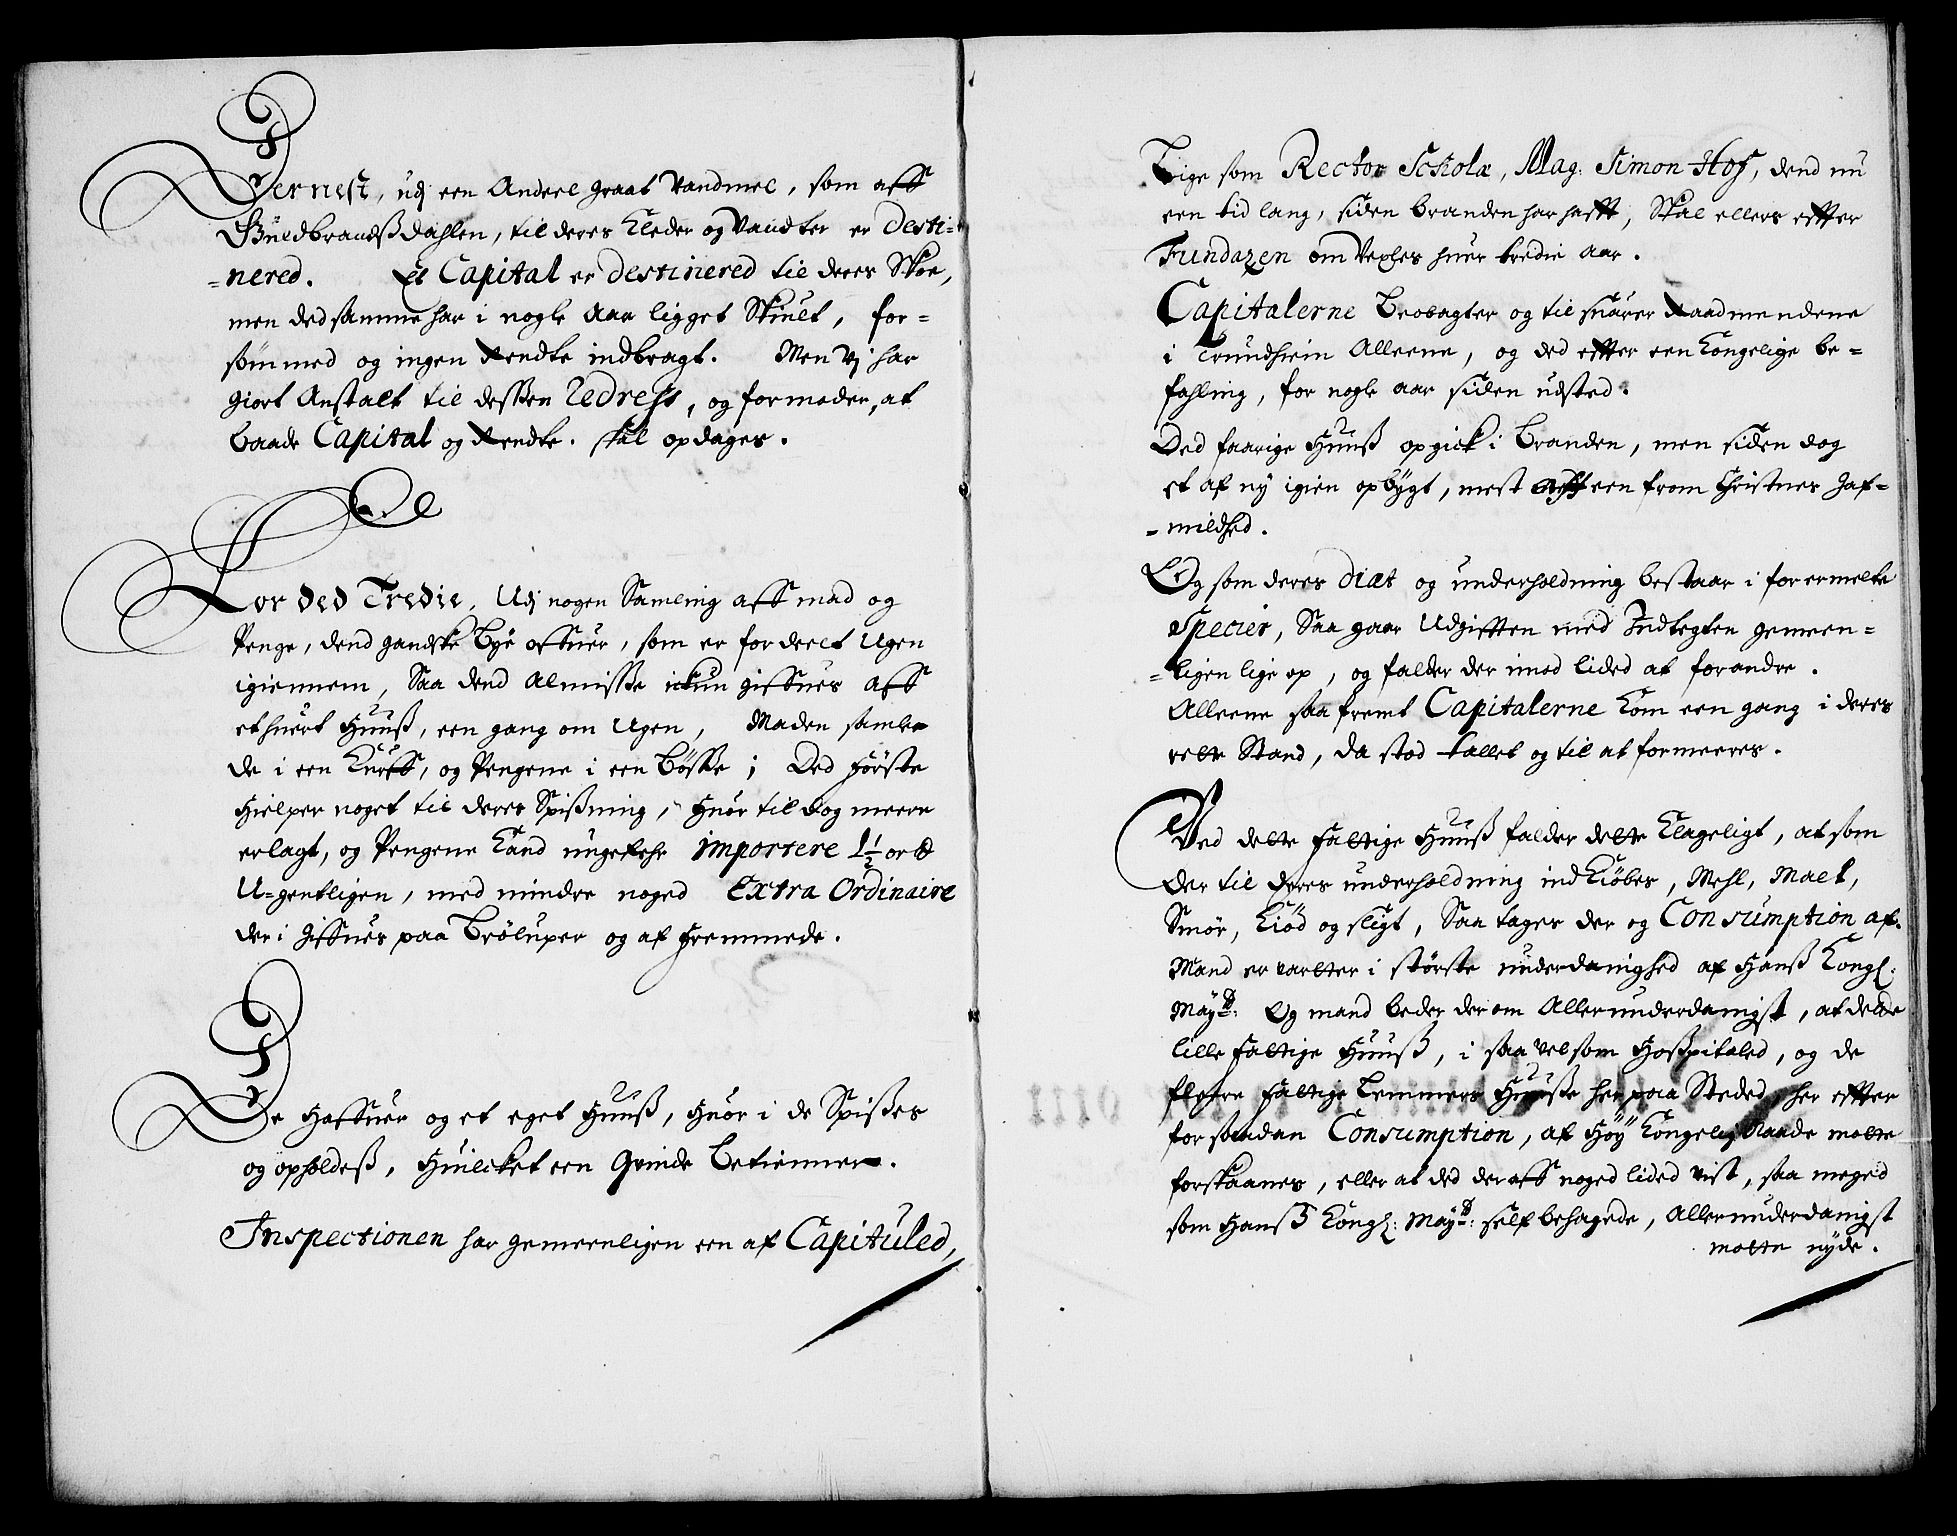 Dernest, udj een Andeel graat Vandmel, som aff
Guldbrandßdahlen, til deres Kleder og Vandter er Desti-
-nered. Et Capital er destinered til deres Skoe,
men ded samme har i nogle Aar ligget Skiult, for-
sømmed og ingen Rendte indbragt. Men Vj har
giort Anstalt til dessen Redress, og formoder, at
baade Capital og Rendte. skal opdages.
For ded Tredie, Udj nogen Samling aff mad og
Penge, dend gandske Bye offuer, som er fordeelt Ugen
igiennem, Saa dend Almisse ickun giffues aff
et huert Huuß, een gang om Ugen, Maden samle-
de i een Kurff, og Pengene i een Bösse; Ded förste
Hielper noget til deres Spißning, Huor til dog meere
erlagt, og Pengene Kand ungefehr importere 1½ ort
U-gentligen, med mindre noged Extra Ordinaire
der i giffues paa Bröluper og af Fremmede.
De Haffuer og et eget Huuß, Huor i de Spißes
og opholdeß, Huilcket een Qvinde Betienner.
Inspectionen har gemeenligen een af Capituled,
Lige som Rector Scholæ, Mag: Simon Hof, dend nu
een tid lang, siden branden har hafft, Skal ellers effter
Fundazen om Vexles huer tredie Aar.
Capitalerne Beobagter og til suarer Raadmendene
i Trundhiem Alleene, og ded effter een Kongelige be-
fahling, for nogle aar siden udsted.
Ded faarige Huuß opgick i Branden, men siden dog
et af ny igien opbÿgt, mest aff een from Christnes Gaf-
-mildhed.
Og som deres diæt og underholdning bestaar i forermelte
Species, Saa gaar Udgifften med Indtegten gemeen-
-ligen lige op, og falder der imod lided at forandre.
Alleene saa fremt Capitalerne kom een gang i deres
rette Stand, da stod tallet og til at formeeres.
Ved dette Fattige Huuß falder dette Klageligt, at som
der til deres underholdning ind Kiöbes, Mehl, Malt,
Smör, Kiöd og sligt, Saa tages der og Consumption af.
Mand er vartter i störste underdanighed af Hanß Kongl:
Mayᵗˢ: Og mand beder der om Allerunderdanigst, at dette
lille Fattige Huuß, i saa vel som Hoßpitaled, og de
fleere Fattige Lemmers Huuße her paa Steded, her effter
for saadan Consumption, af Höÿ Kongelig Naade motte
forskaanes, eller at ded der aff noged lided vist, saa meged
som Hanß Kongl: Mayᵗˢ: self behagede, Allerunderdanigst
motte nyde.